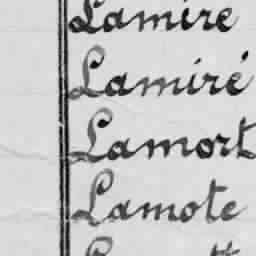 Lamire
Lamiré
Lamort
Lamote